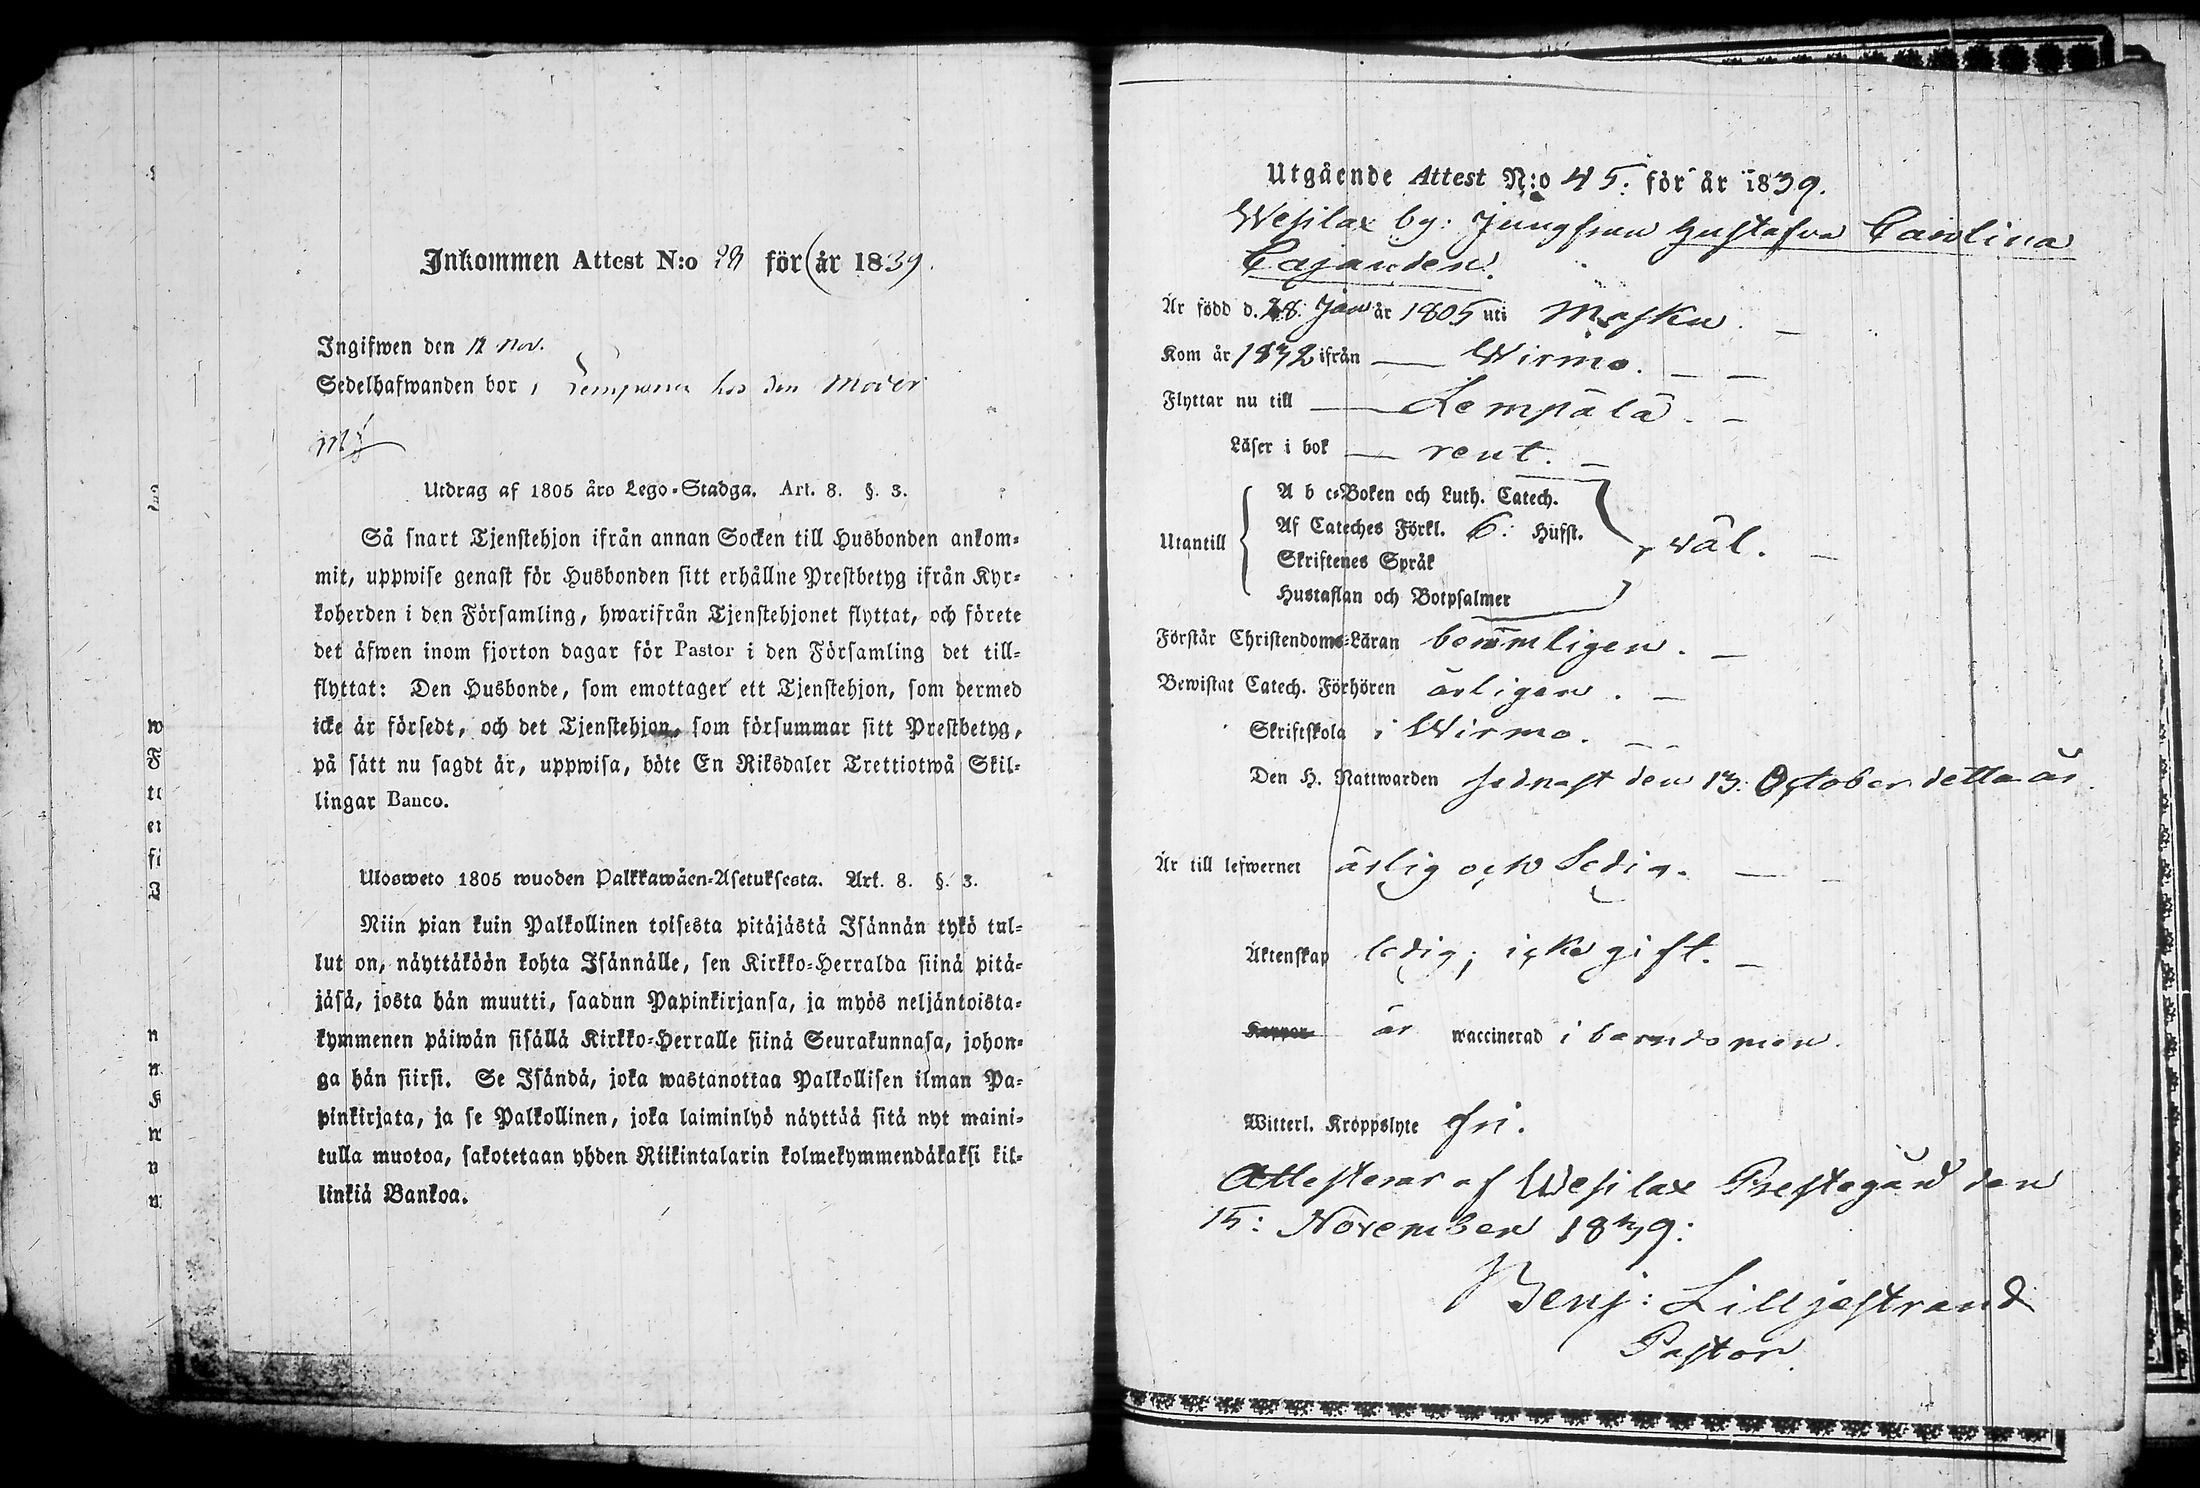 Inkommen Attest N:o 28 för år 1839.
Ingifwen den nov.
Sedelhafwanden bor i hos den Moder
Utdrag af 1805 åro Lego-Stadga. Art. 8. §. 3.
Så snart Tjenstehjon ifrån annan Socken till Husbonden ankom-
mit, uppwise genast för Husbonden sitt erhållne Prestbetyg ifrån Kyr-
koherden i den Församling, hwarifrån Tjenstehjonet flyttat, och förete
det äfwen inom fjorton dagar för Pastor i den Församling det till-
flyttat: Den Husbonde, som emottager ett Tjenstehjon, som dermed
icke är försedt, och det Tjenstehjon, som försummar sitt Prestbetyg,
på sätt nu sagdt är, uppwisa, böte En Riksdaler Trettiotwå Skil-
lingar Banco.
Ulosweto 1805 wuoden Palkkawäen-Asetuksesta. Art. 8. §. 3.
Niin pian kuin Palkollinen toisesta pitäjästä Isännän tykö tul-
lut on, näyttäköön kohta Isännälle, sen Kirkko-Herralda siinä pitä-
jäsä, josta hän muutti, saadun Papinkirjansa, ja myös neljäntoista-
kymmenen päiwän sisällä Kirkko-Herralle siinä Seurakunnasa, johon-
ga hän siirsi. Se Isändä, joka wastanottaa Palkollisen ilman Pa-
pinkirjata, ja se Palkollinen, joka laiminlyö näyttää sitä nyt maini-
tulla muotoa, sakotetaan yhden Riikintalarin kolmekymmendäkaksi kil-
linkiä Bankoa.
Utgående Attest N:o 45. för år 1839.
Wesilax by: Jungfrun Gustafva Carolina
Cajander.
Är född d. 28. Jan år 1805 uti Masku.
Kom år 1832 ifrån Wirmo.
Flyttar nu till Lempälä.
Läser i bok rent.
Utantill
A b c-Boken och Luth. Catech.
Af Cateches Förkl. 6: Hufst.
Skriftenes Språk
Hustaflan och Botpsalmer
wäl.
Förstår Christendoms-Läran berömligen.
Bewistat Catech. Förhören årligen.
Skriftskola i Wirmo.
Den H. Nattwarden sednast den 13. October detta år
Är till lefwernet ärlig och Sedig.
Äktenskap ledig; icke gift.
Koppor är waccinerad i barndomen.
Witterl. Kroppslyte fri.
Attesterar af Wesilax Prestegård den
15: November 1839:
Benj: Lilljestrand
Pastor.